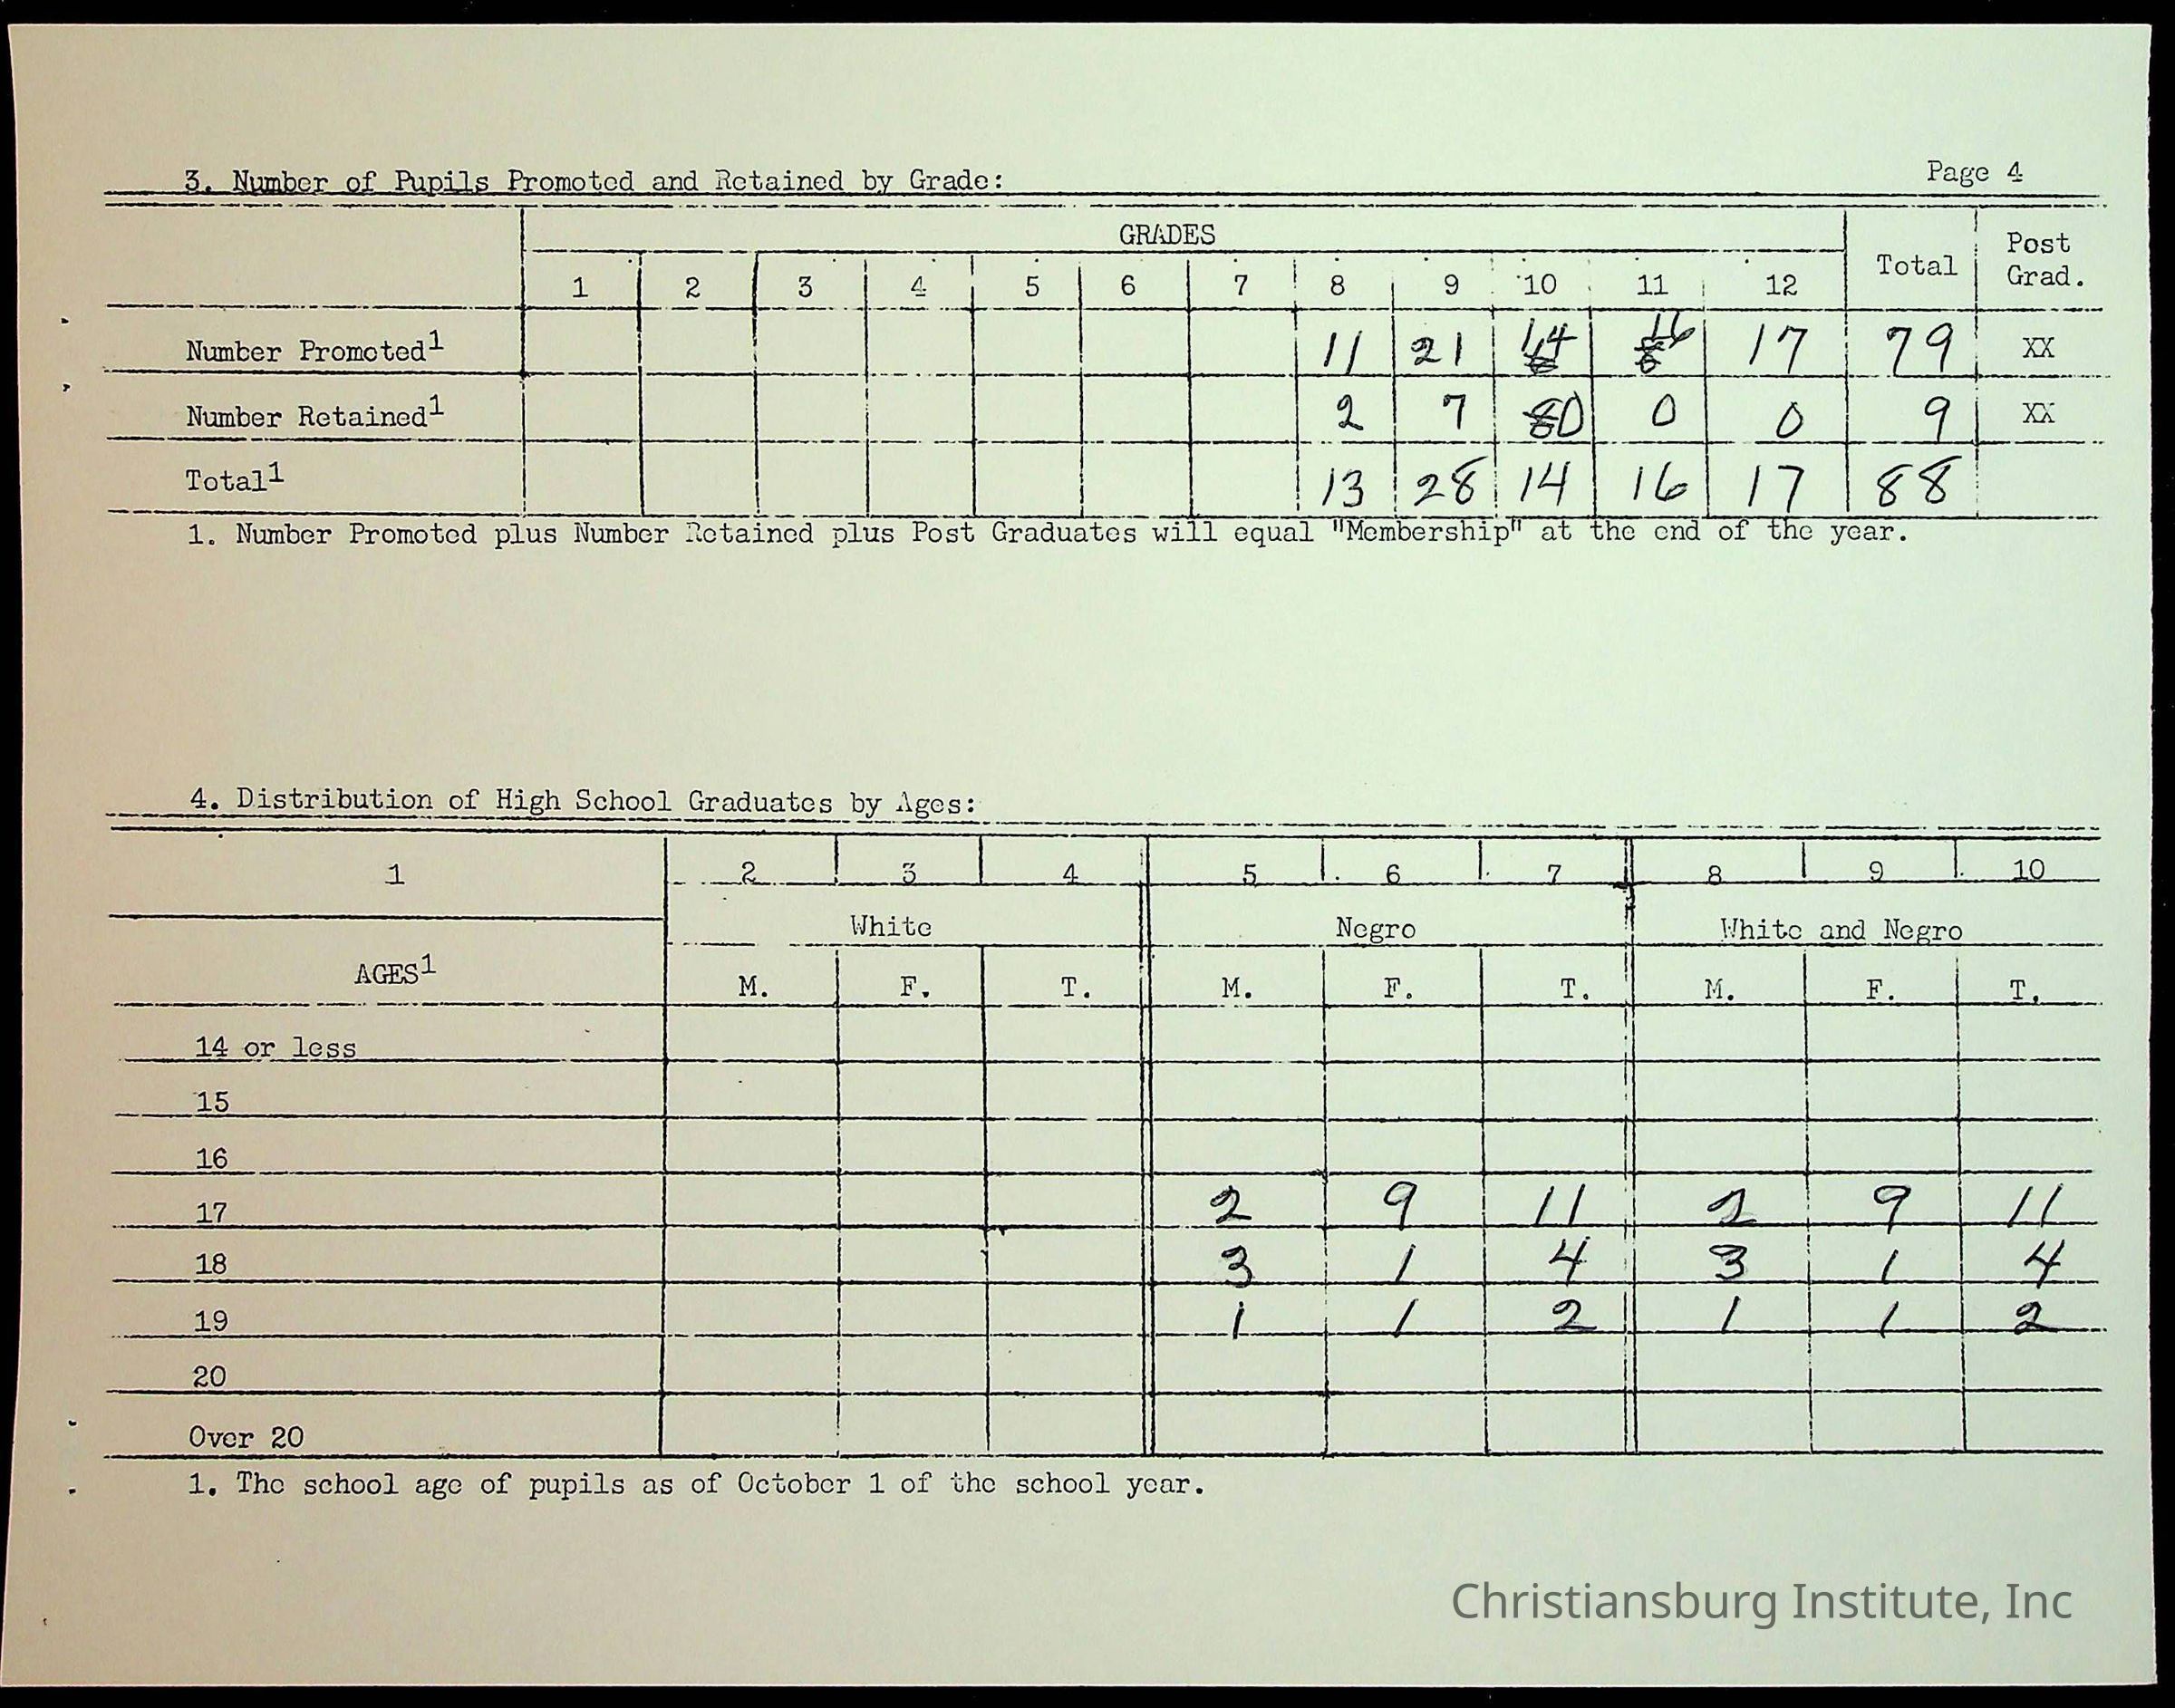 3. Number of Pupils Promoted and Retained by Grade:
Page 4
GRADES Total Post Grad.
1 2 3 4 5 6 7 8 9 10 11 12
Number Promoted1 11 21 14 16 17 79 XX
Number Retained1 2 7 0 0 0 9 XX
Total1 13 28 14 16 17 88
1. Number Promoted plus Number Retained plus Post Graduates will equal "Membership" at the end of the year.
4. Distribution of High School Graduates by Ages:
1 2 3 4 5 6 7 8 9 10
White Negro White and Negro
AGES1 M. F. T. M. F. T. M. F. T.
14 or less
15
16
17 2 9 11 2 9 11
18 3 1 4 3 1 4
19 1 1 2 1 1 2
20
Over 20
1. The school age of pupils as of October 1 of the school year.
Christiansburg Institute, Inc